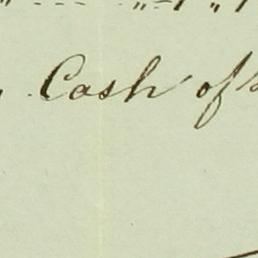 Cash of